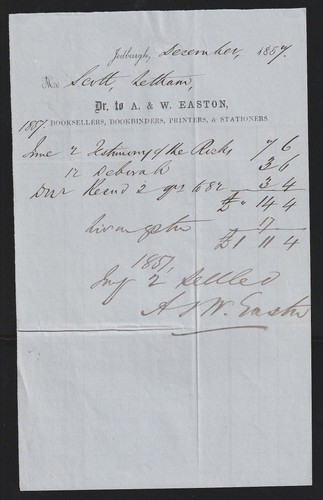 Jedburgh, December, 1857.
Scott, Letham,
Dr. to A. & W. EASTON,
1857 BOOKSELLERS, BOOKBINDERS, PRINTERS, & STATIONERS.
June 2 Testimony of the Rocks 7 6
12 Deborah 3 6
Record 2 to 3 4
£ " 14 4
Livingston 17
£1 11 4
1857
2 Settled
A & W. Easton